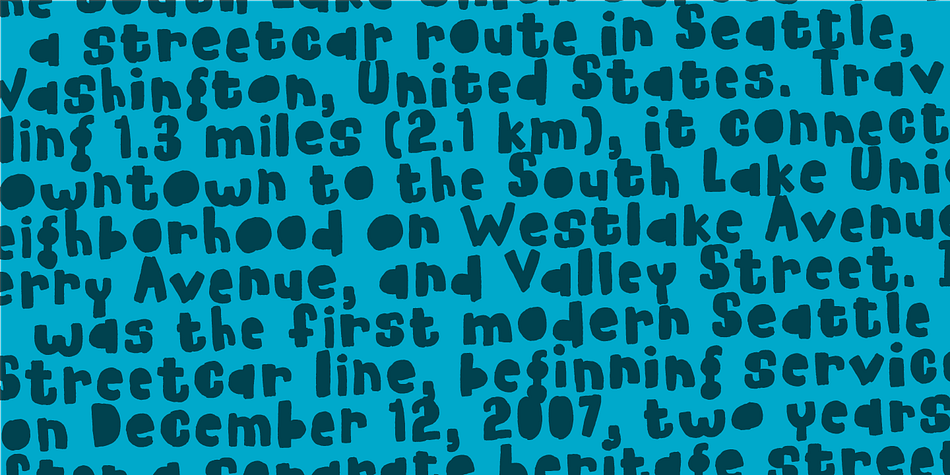 South Lake Union Street
a streetcar route in Seattle,
Washington, United States. Trav
ling 1.3 miles (2.1 km), it connect
owntown to the South Lake Uni
eighborhood on Westlake Avenu
erry Avenue, and Valley Street.
was the first modern Seattle
Streetcar line, beginning servic
on December 12, 2007, two years
after a separate heritage stree